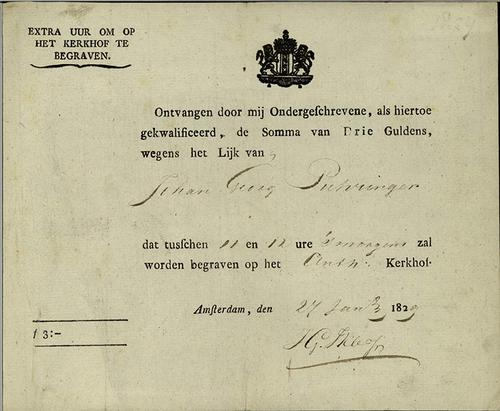 EXTRA UUR OM OP
HET KERKHOF TE
BEGRAVEN.
Ontvangen door mij Ondergeſchrevene, als hiertoe
gekwalificeerd, de Somma van Drie Guldens,
wegens het Lijk van
Johan Puhringer
dat tusſchen 11 en 12 ure 's morgens zal
worden begraven op het Kerkhof.
Amſterdam, den 27 Jan 1829
f 3:-